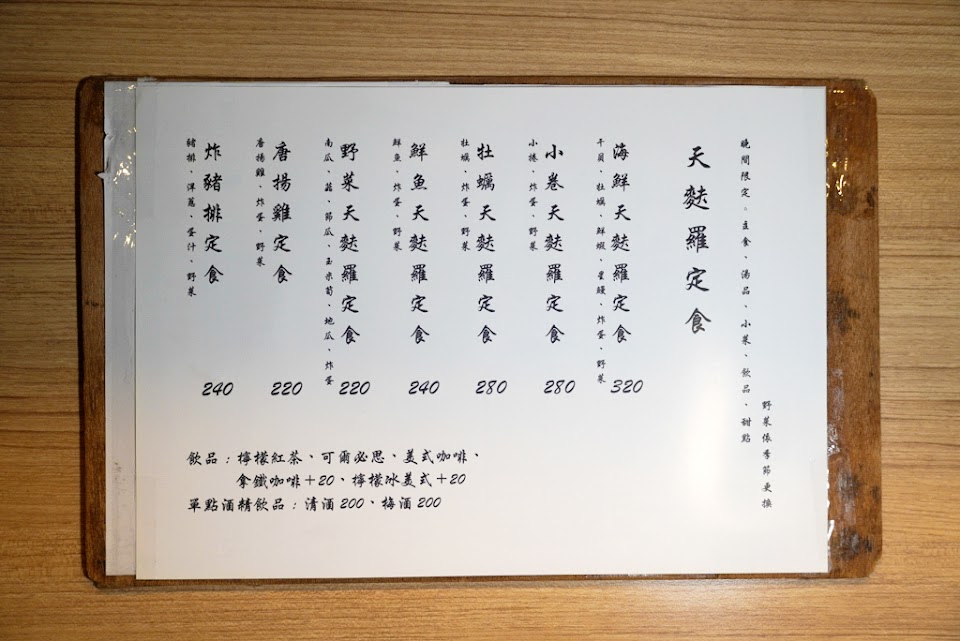 晚間限定。主食、湯品、小菜、飲品、甜點
野菜依季節更換
天麩羅定食
海鮮天麩羅定食 320
干貝、牡蠣、鮮蝦、星鰻、炸蛋、野菜
小卷天麩羅定食 280
小捲、炸蛋、野菜
牡蠣天麩羅定食 280
牡蠣、炸蛋、野菜
鮮魚天麩羅定食 240
鮮魚、炸蛋、野菜
野菜天麩羅定食 220
南瓜、菇、節瓜、玉米筍、地瓜、炸蛋
唐揚雞定食 220
唐揚雞、炸蛋、野菜
炸豬排定食 240
豬排、洋蔥、蛋汁、野菜
飲品：檸檬紅茶、可爾必思、美式咖啡、
拿鐵咖啡+20、檸檬冰美式+20
單點酒精飲品：清酒200、梅酒200